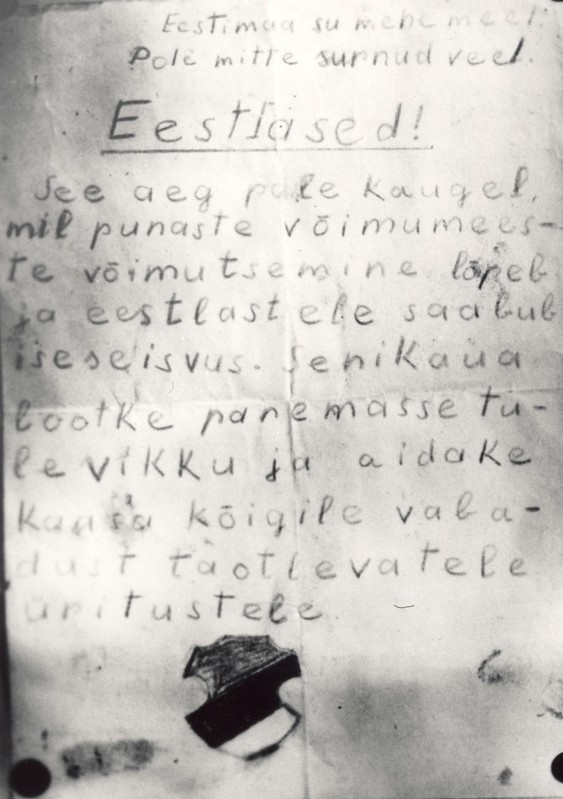 Eestimaa su mehe meel
Pole mitte surnud veel.
Eestlased!
See aeg pole kaugel,
mil punaste võimumees-
te võimutsemine lõpeb
ja eestlastele saabub
iseseisvus. Senikaua
lootke paremasse tu-
levikku ja aidake
kaasa kõigile vaba-
dust taotlevatele
üritustele.